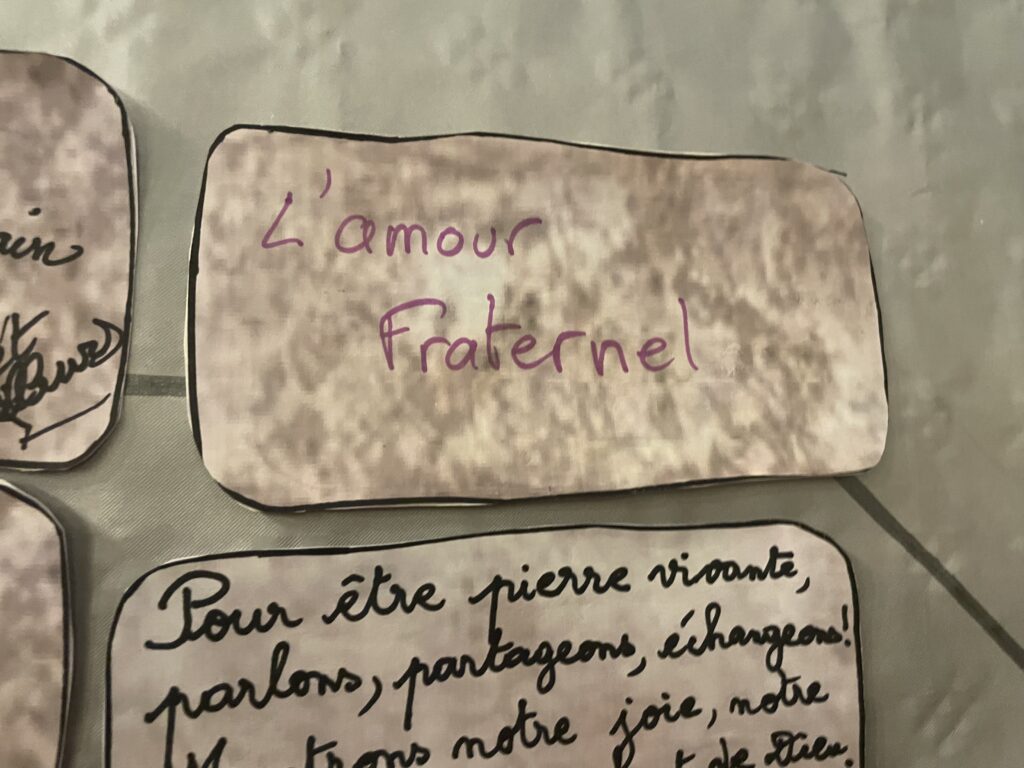 L'amour
Fraternel
Pour être pierre vivante,
parlons, partageons, échangeons!
notre joie, notre
de Dieu.